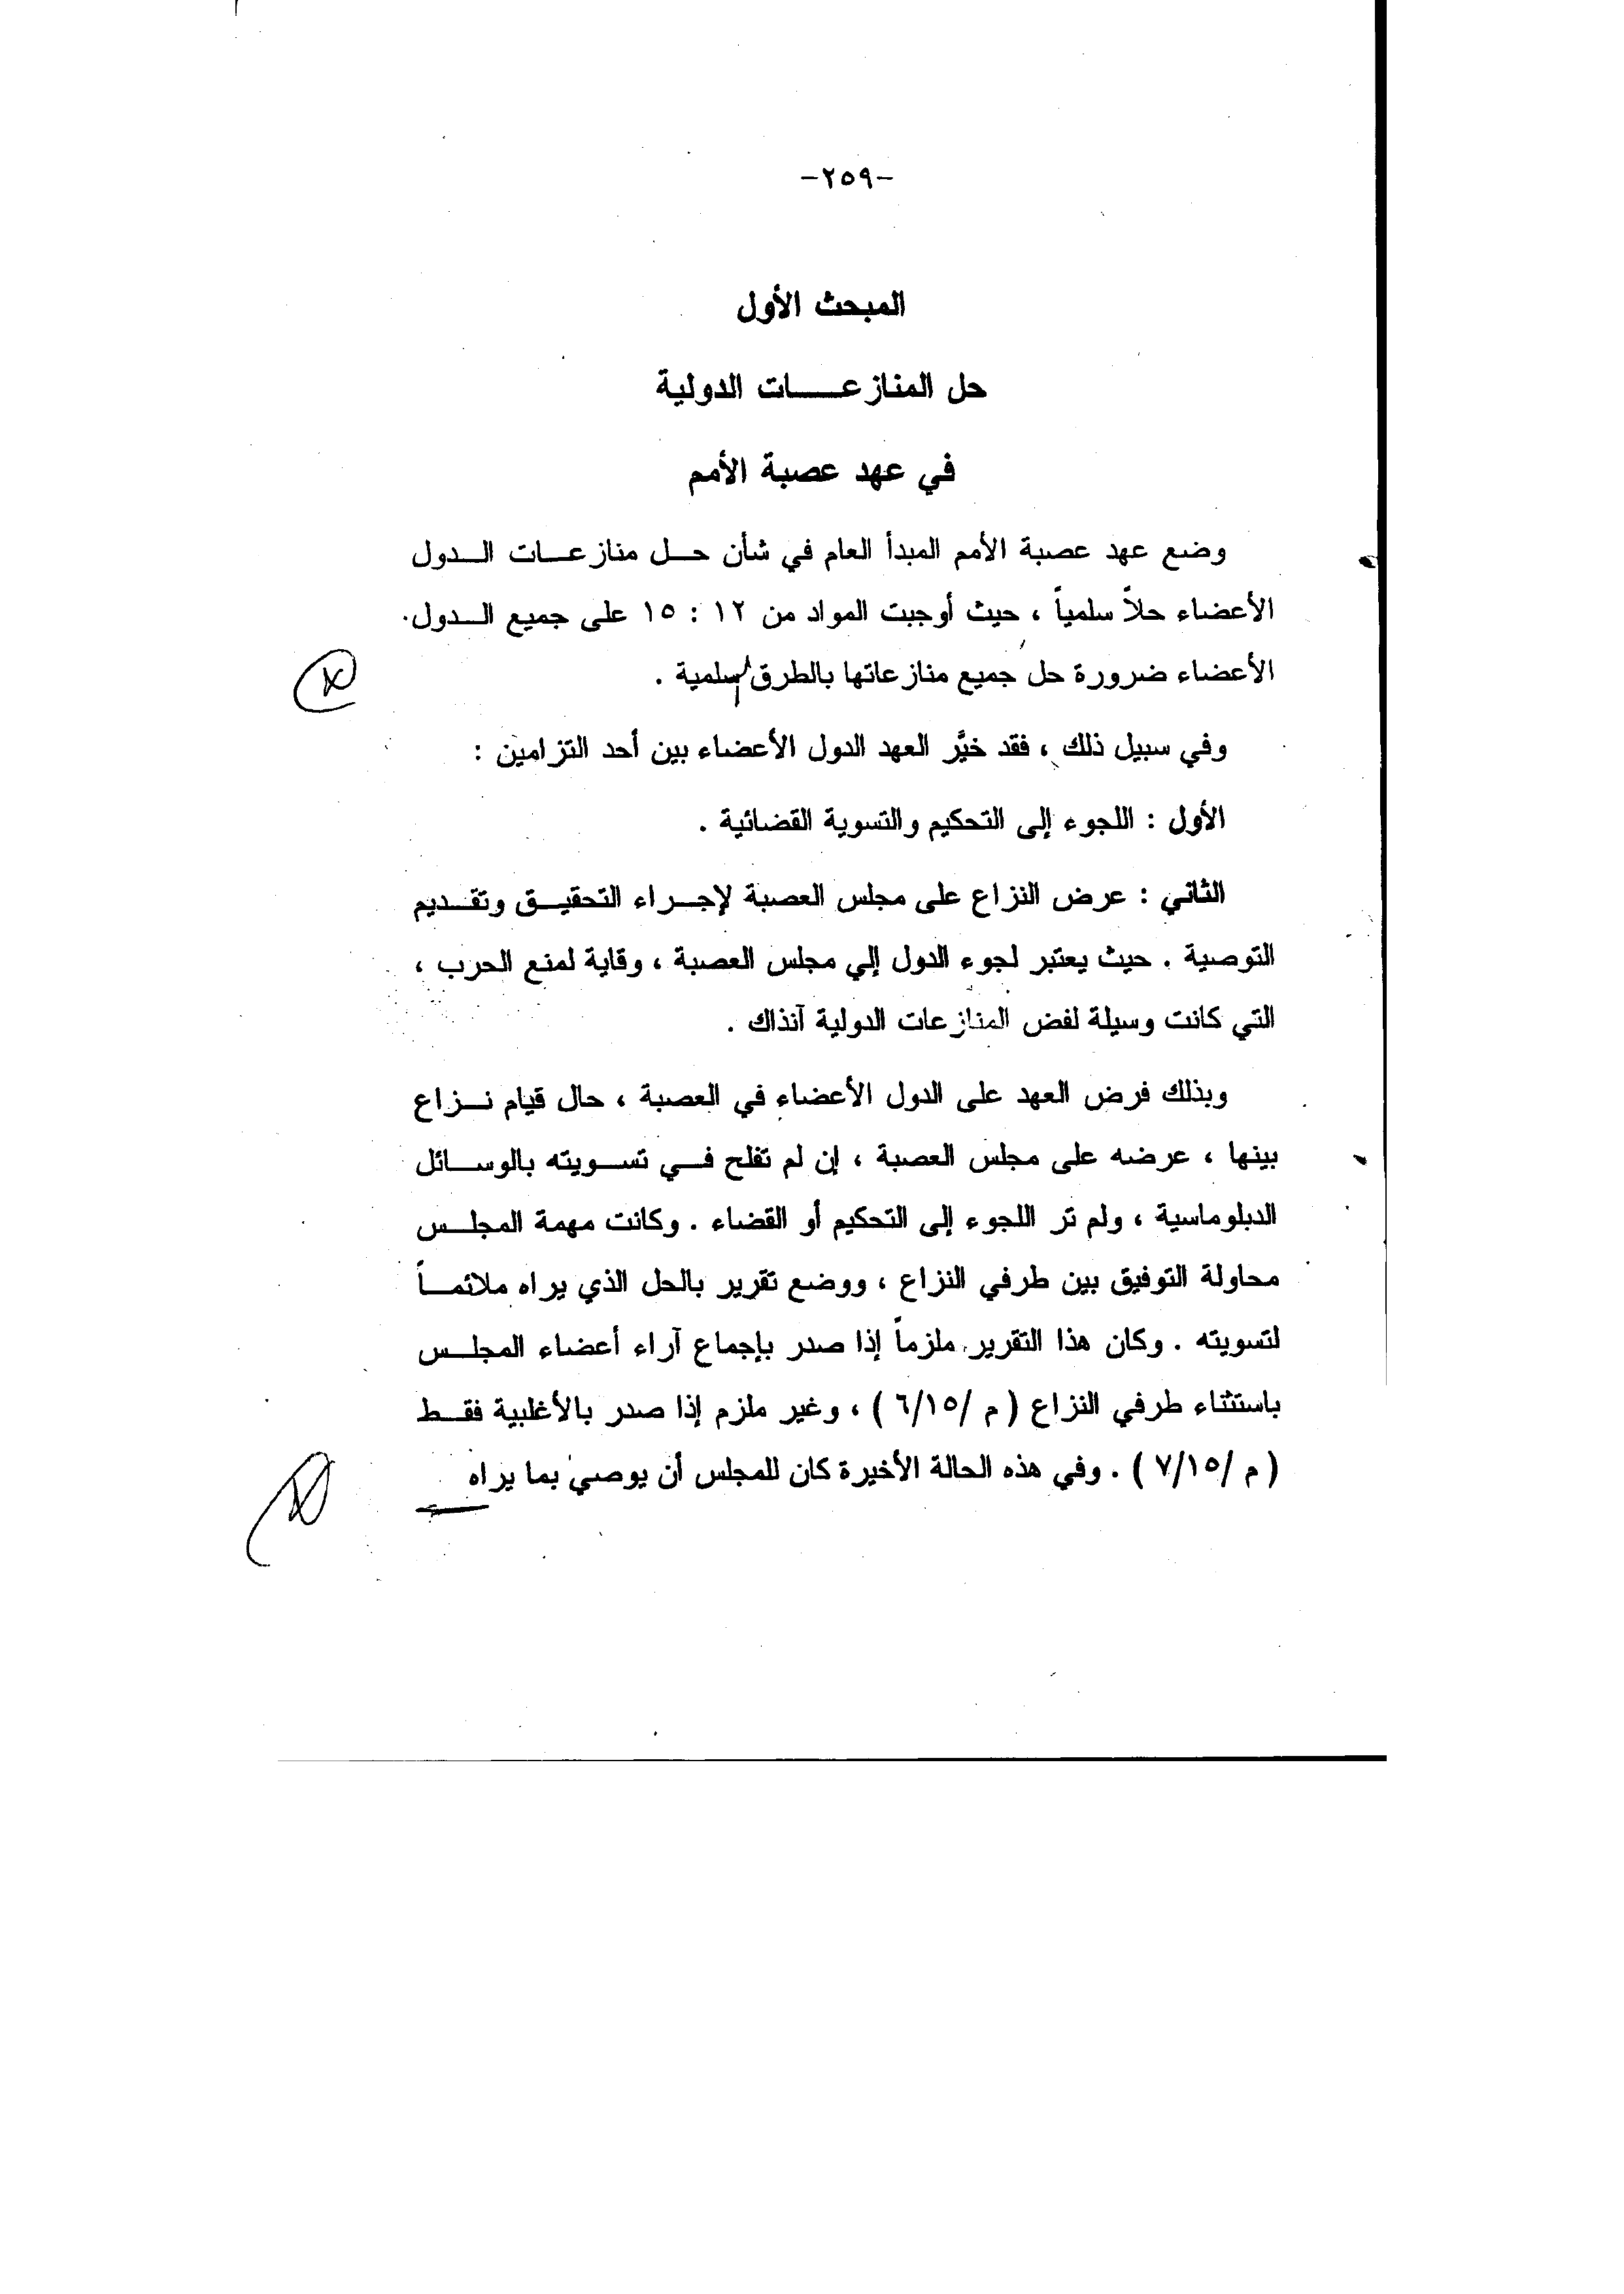 -٢٥٩-
المبحث الأول
حل المنازعـــــات الدولية
في عهد عصبة الأمم
وضع عهد عصبة الأمم المبدأ العام في شأن حــل منازعــات الــدول
الأعضاء حلاً سلمياً ، حيث أوجبت المواد من ١٢ : ١٥ على جميع الــدول
الأعضاء ضرورة حل جميع منازعاتها بالطرق سلمية .
وفي سبيل ذلك ، فقد خيَّر العهد الدول الأعضاء بين أحد التزامين :
الأول : اللجوء إلى التحكيم والتسوية القضائية .
الثاني : عرض النزاع على مجلس العصبة لإجــراء التحقيــق وتقــديم
التوصية . حيث يعتبر لجوء الدول إلي مجلس العصبة ، وقاية لمنع الحرب ،
التي كانت وسيلة لفض المنازعات الدولية آنذاك .
وبذلك فرض العهد على الدول الأعضاء في العصبة ، حال قيام نــزاع
بينها ، عرضه على مجلس العصبة ، إن لم تفلح فــي تســويته بالوســائل
الدبلوماسية ، ولم تر اللجوء إلى التحكيم أو القضاء . وكانت مهمة المجلــس
محاولة التوفيق بين طرفي النزاع ، ووضع تقرير بالحل الذي يراه ملائمــاً
لتسويته . وكان هذا التقرير ملزماً إذا صدر بإجماع آراء أعضاء المجلــس
باستثناء طرفي النزاع ( م /٦/١٥ ) ، وغير ملزم إذا صدر بالأغلبية فقــط
( م /٧/١٥ ) . وفي هذه الحالة الأخيرة كان للمجلس أن يوصي بما يراه